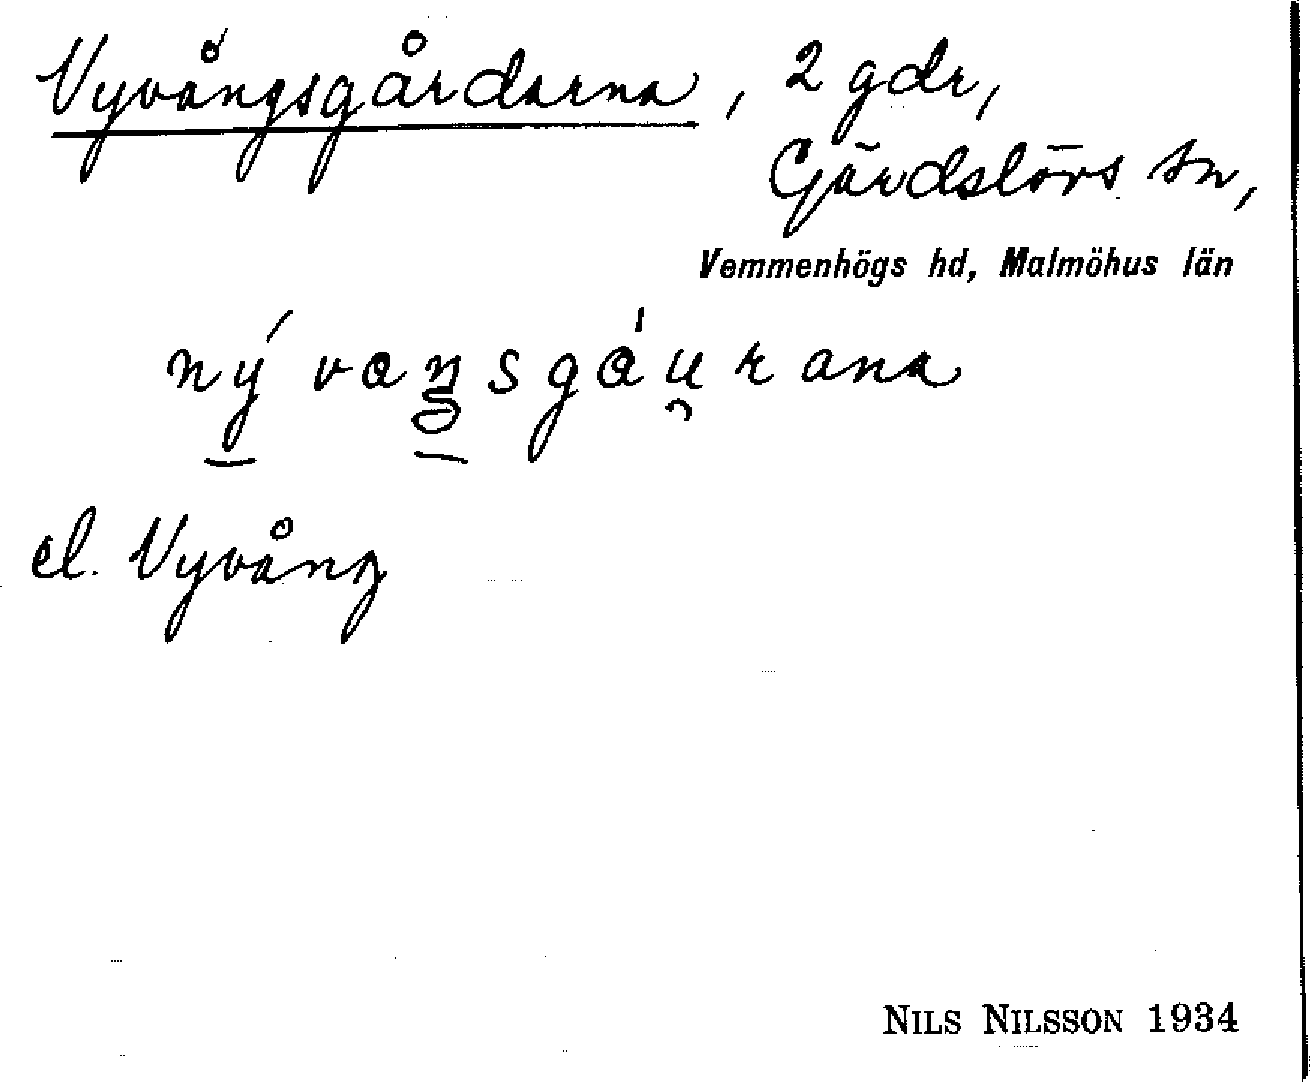 Vyvångsgårdarna, 2 gdr,
Gärdslövs sn,
Vemmenhögs hd, Malmöhus län
nývaŋsgáu̯rana
el. Vyvång
NILS NILSSON 1934